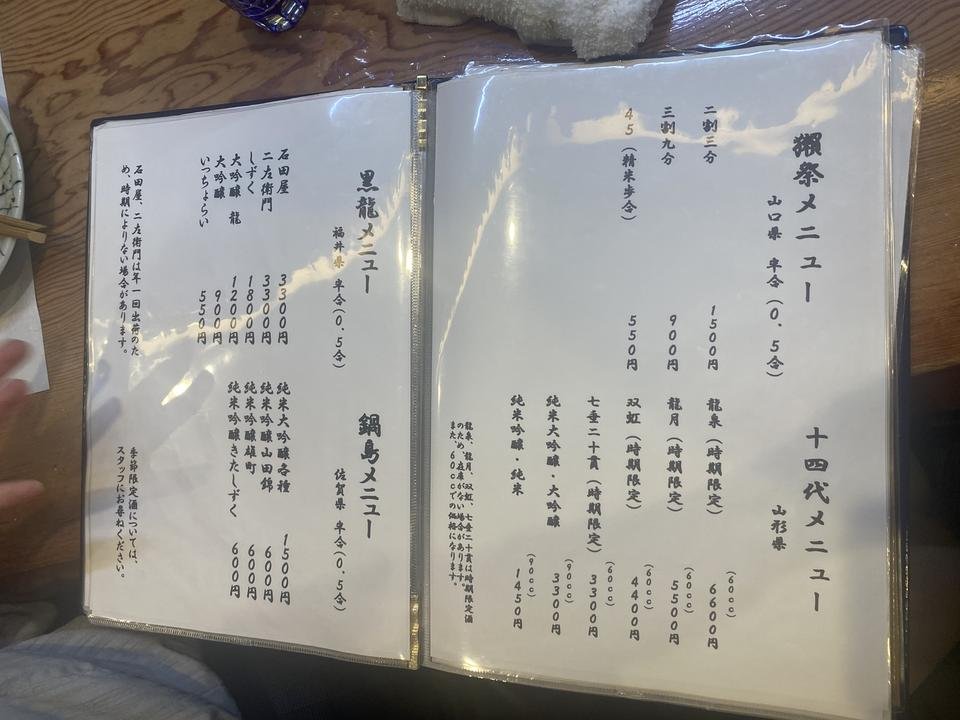 獺祭メニュー
山口県 半合(0.5合)
二割三分 1500円
三割九分 900円
45(精米歩合) 550円
十四代メニュー
山形県
龍泉(時期限定) (60cc) 6600円
龍月(時期限定) (60cc) 5500円
双虹(時期限定) (60cc) 4400円
七垂二十貫(時期限定) (60cc) 3300円
純米大吟醸・大吟醸 (90cc) 3300円
純米吟醸・純米 (90cc) 1450円
龍泉、龍月、双虹、七垂二十貫は時期限定酒
のため、在庫がない場合があります。
また、60ccでの価格になります。
黒龍メニュー
福井県 半合(0.5合)
石田屋 3300円
二左衛門 3300円
しずく 1800円
大吟醸 龍 1200円
大吟醸 900円
いっちょらい 550円
石田屋、二左衛門は年一回出荷のた
め、時期によりない場合があります。
鍋島メニュー
佐賀県 半合(0.5合)
純米大吟醸各種 1500円
純米吟醸山田錦 600円
純米吟醸雄町 600円
純米吟醸きたしずく 600円
季節限定酒については、
スタッフにお尋ねください。